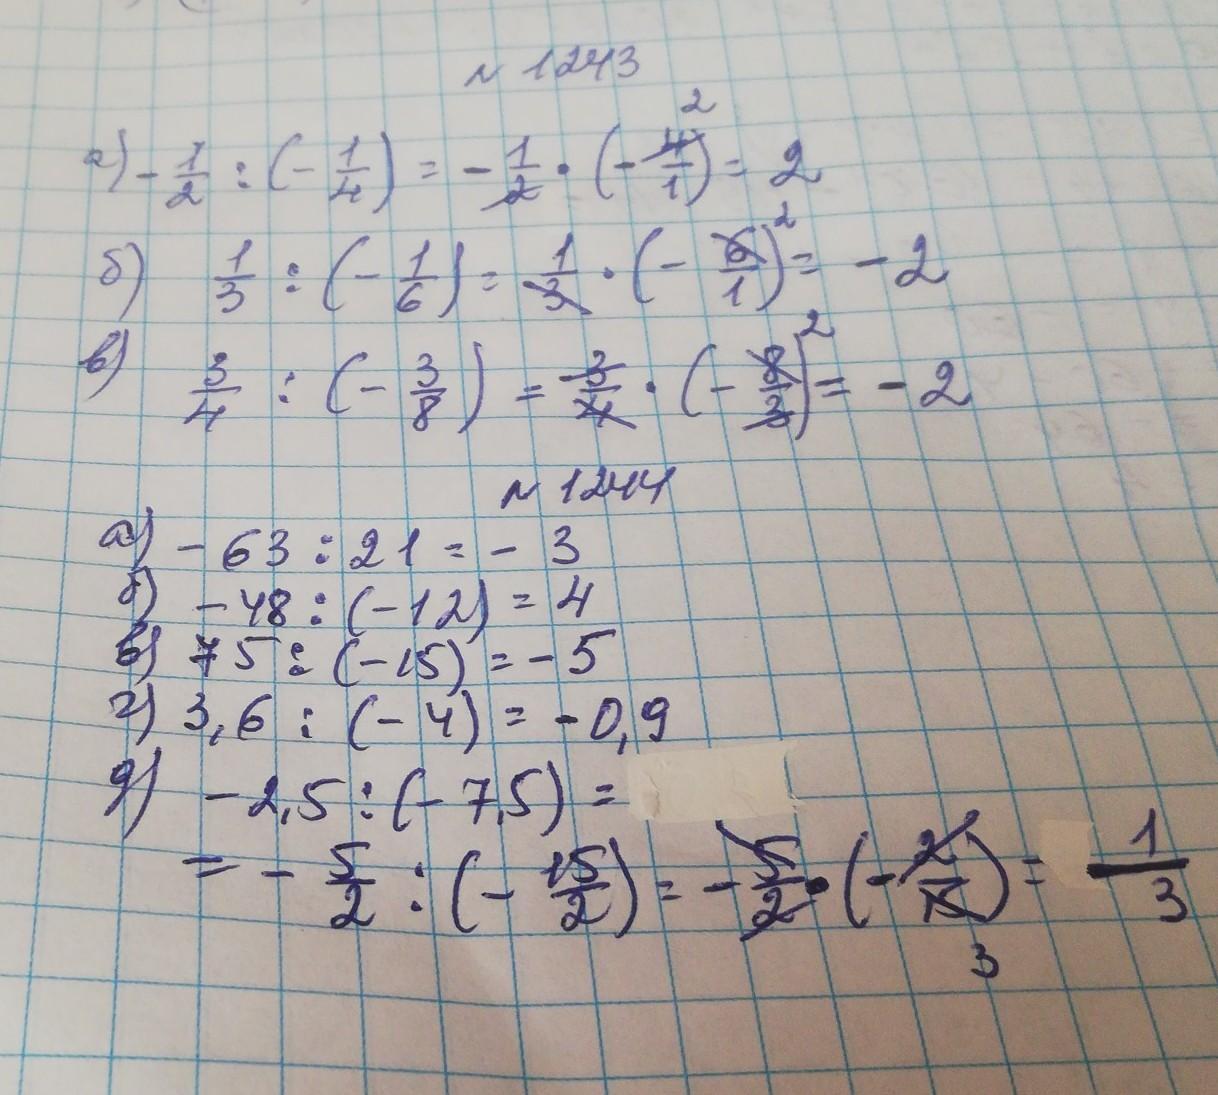 № 1243
а) -1/2 : (-1/4) = -1/2 · (-4/1) 2 = 2
б) 1/3 : (-1/6) = 1/3 · (-6/1) 2 = -2
в) 3/4 : (-3/8) = 3/4 · (-8/3) 2 = -2
№ 1244
а) -63 : 21 = -3
б) -48 : (-12) = 4
в) 75 : (-15) = -5
г) 3,6 : (-4) = -0,9
д) -2,5 : (-7,5) =
= -5/2 : (-15/2) = -5/2 · (-2/15) 3 = 1/3